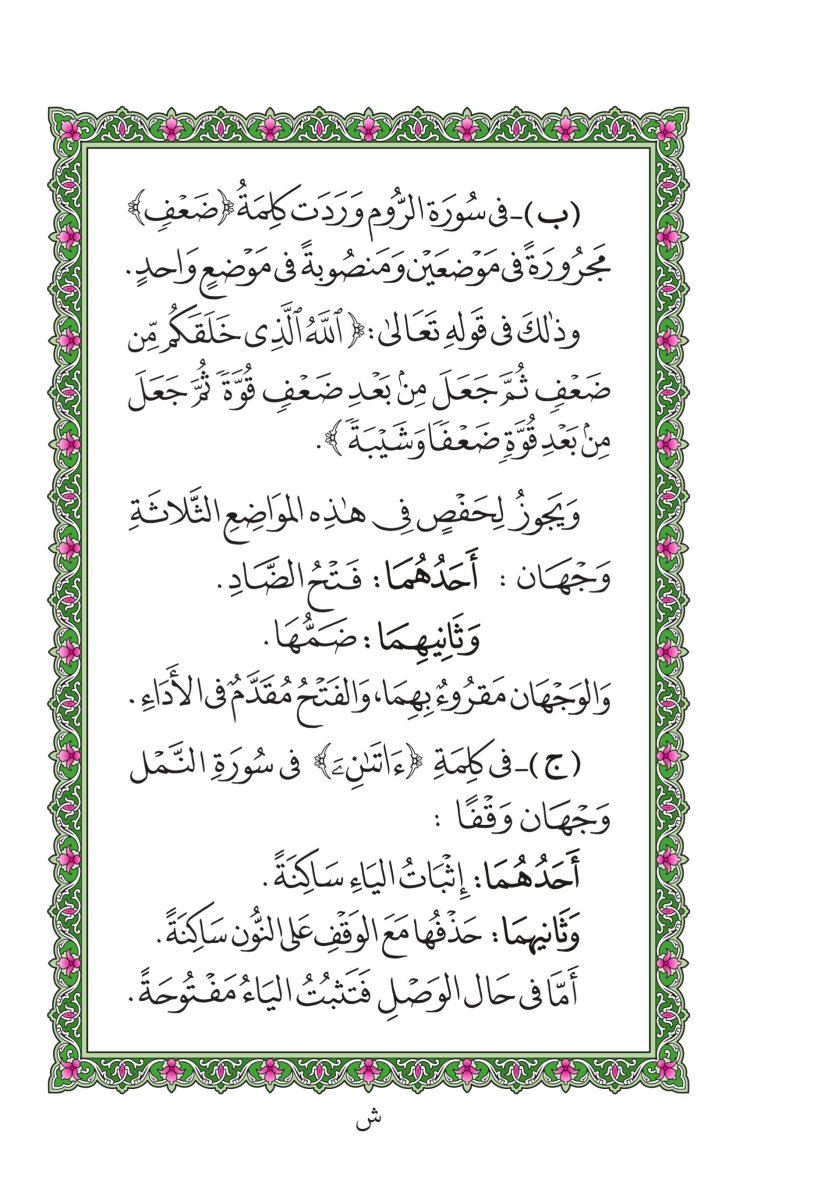 (ب)-فى سُورَةِ الرُّوم وَرَدَت كَلِمَةُ ﴿ضَعۡفٖ﴾
مَجرُورَةً فى مَوۡضعَيۡن وَمَنصُوبةً فى مَوۡضعٍ وَاحدٍ.
وذٰلكَ فى قَولهِ تَعَالىٰ: ﴿ٱللَّهُ ٱلَّذِى خَلَقَكُم مِّن
ضَعۡفٖ ثُمَّ جَعَلَ مِنۢ بَعۡدِ ضَعۡفٖ قُوَّةٗ ثُمَّ جَعَلَ
مِنۢ بَعۡدِ قُوَّةٖ ضَعۡفٗا وَشَيۡبَةٗ﴾.
وَيَجوزُ لِحَفۡصٍ فِى هـٰذِه المَواضِعِ الثَّلاثَةِ
وَجۡهَان : أَحَدُهُمَا: فَتۡحُ الضَّادِ.
وَثَانِيهِمَا: ضَمُّهَا.
وَالوَجۡهَان مَقروُءٌ بِهِمَا، وَالفَتۡحُ مُقَدَّمٌ فى الأَدَاءِ.
(ج)-فى كَلِمَةِ ﴿ءَاتَىٰنِۦَ﴾ فى سُورَةِ النَّمۡل
وَجۡهَان وَقۡفًا :
أَحَدُهُمَا: إِثۡبَاتُ اليَاءِ سَاكِنَةً.
وَثَانيهمَا: حَذۡفُها مَعَ الوَقۡفِ عَلى النُّون سَاكنَةً.
أَمَّا فى حَال الوَصۡلِ فَتَثبُتُ اليَاءُ مَفۡتُوحَةً.
ش